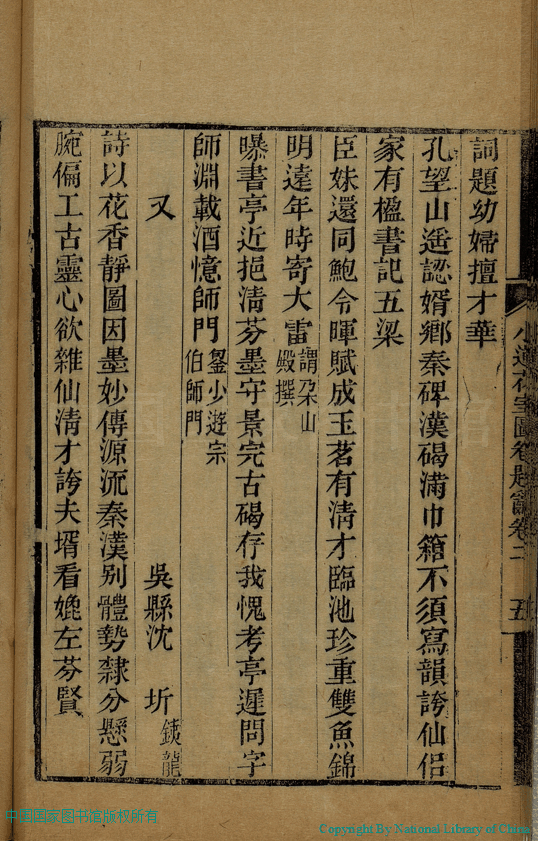 詞題幼婦擅才華
孔望山遙認婿鄉秦碑漢碣滿巾箱不須寫韻誇仙侶
家有楹書記五梁
臣妹還同鮑令暉賦成玉茗有清才臨池珍重雙魚錦
明遠年時寄大雷謂朶山殿撰
曝書亭近挹清芬墨守景完古碣存我愧考亭遲問字
師淵載酒憶師門鋆少遊宗伯師門
又 吳縣沈 圻鐵龍
詩以花香靜圖因墨妙傳源流秦漢别體勢隸分懸弱
腕偏工古靈心欲雜仙清才誇夫壻看媲左芬賢
小蓮花室圖卷題詞卷二 五
中国国家图书馆版权所有
Copyright By National Library of China